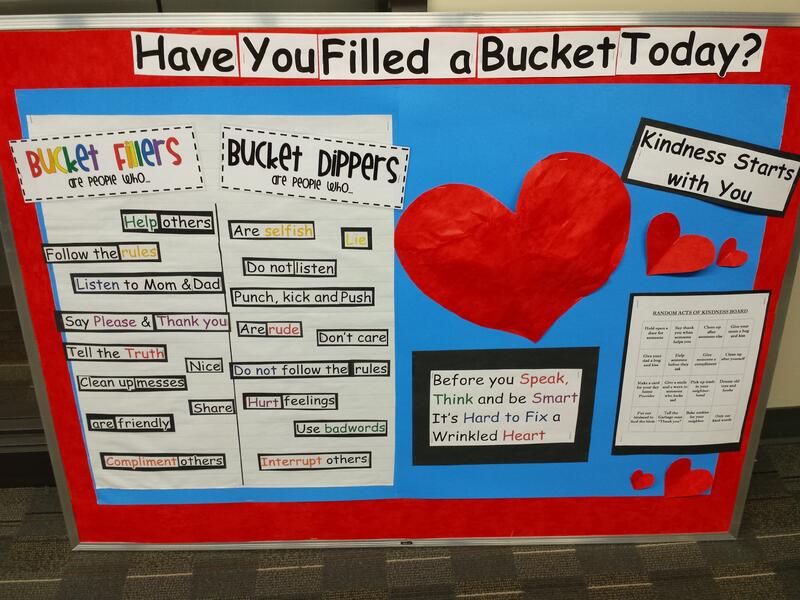 Have You Filled a Bucket Today?
Bucket Fillers
are people who...
Help others
Follow the rules
Listen to Mom & Dad
Say Please & Thank you
Tell the Truth
Nice
Clean up messes
Share
are friendly
Compliment others
Bucket Dippers
are people who...
Are selfish
Lie
Do not listen
Punch, kick and Push
Are rude
Don't care
Do not follow the rules
Hurt feelings
Use badwords
Interrupt others
Before you Speak,
Think and be Smart
It's Hard to Fix a
Wrinkled Heart
Kindness Starts
with You
RANDOM ACTS OF KINDNESS BOARD
Hold open a
door for
someone
Say thank
you when
someone
helps you
Clean up
after
someone else
Give your
mom a hug
and kiss
Give your
dad a hug
and kiss
Help
someone
before they
ask
Give
someone a
compliment
Clean up
after yourself
Make a card
for your day
home
Provider
Give a smile
and a wave to
someone
who looks
sad
Pick up trash
in your
neighbor-
hood
Donate old
toys and
books
Put out
birdseed to
feed the birds
Tell the
Garbage man
"Thank you"
Bake cookies
for your
neighbor
Only use
kind words